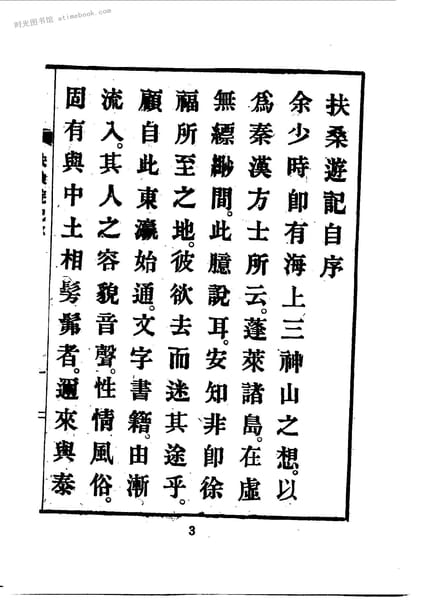 时光图书馆 - etimebook.com
扶桑遊記自序
余少時卽有海上三神山之想。以
爲秦漢方士所云。蓬萊諸島。在虛
無縹緲間。此臆說耳。安知非卽徐
福所至之地。彼欲去而迷其途乎。
顧自此東瀛始通。文字書籍。由漸
流入。其人之容貌音聲。性情風俗。
固有與中土相髣髴者。邇來與泰
3